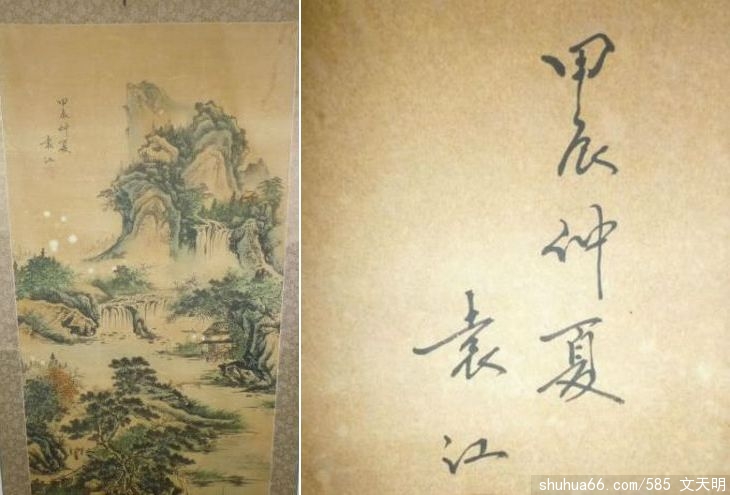 甲辰仲夏
袁江
甲辰仲夏
袁江
shuhua66.com/585 文天明